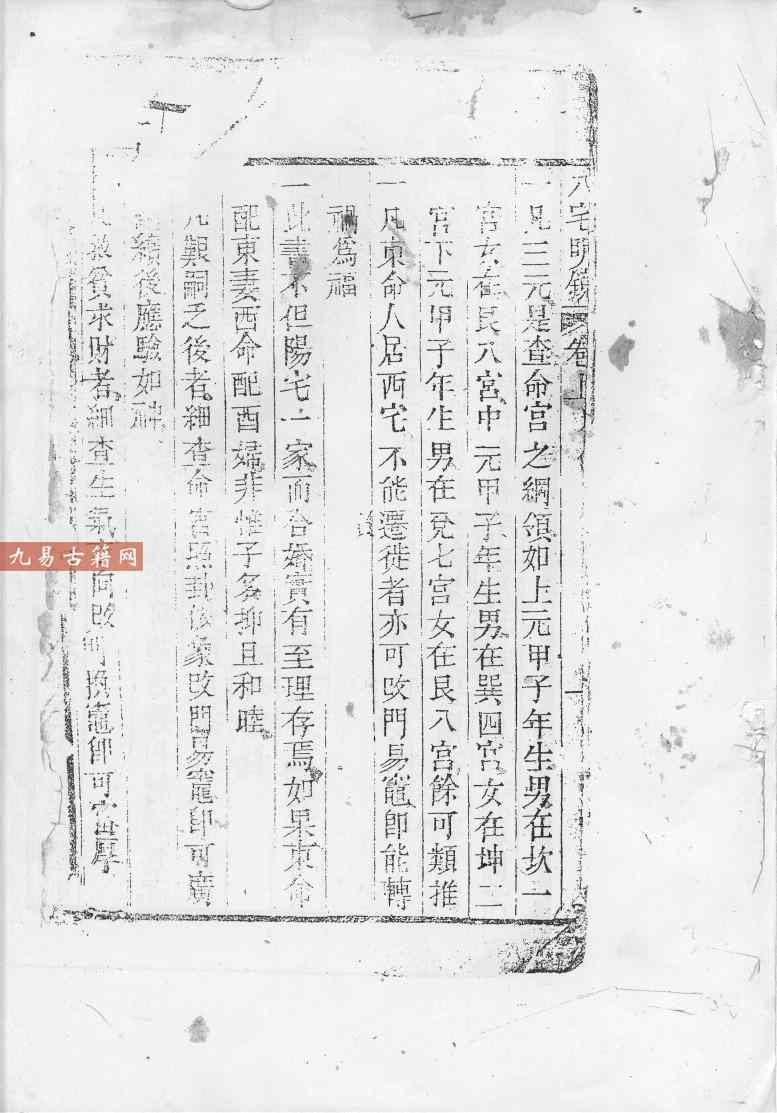 八宅明鏡 卷上 一
一凡三元是查命宮之綱領如上元甲子年生男在坎一
宮女在艮八宮中元甲子年生男在巽四宮女在坤二
宮下元甲子年生男在兌七宮女在艮八宮餘可類推
一凡東命人居西宅不能遷徙者亦可改門易竈卽能轉
禍爲福
一此書不但陽宅一家而合婚實有至理存焉如果東命
配東妻西命配酉婦非惟子多抑且和睦
凡艱嗣乏後者細查命宮照卦修象改門易竈卽可廣
續後應驗如神
救貧求財者細查生氣方向改門換竈卽可富厚
九易古籍网